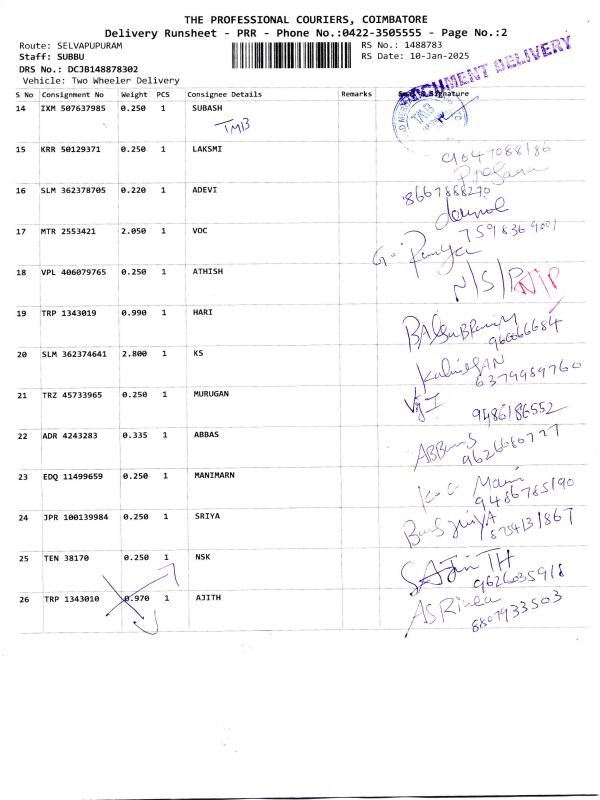 THE PROFESSIONAL COURIERS, COIMBATORE
Delivery Runsheet - PRR - Phone No.:0422-3505555 - Page No.:2
Route: SELVAPUPURAM RS No.: 1488783
Staff: SUBBU RS Date: 10-Jan-2025
DRS No.: DCJB148878302
Vehicle: Two Wheeler Delivery
DOCUMENT DELIVERY
S No Consignment No Weight PCS Consignee Details Remarks Signature
14 IXM 507637985 0.250 1 SUBASH
TMB TMB
15 KRR 50129371 0.250 1 LAKSMI
9047088186
16 SLM 362378705 0.220 1 ADEVI 8667888270
17 MTR 2553421 2.050 1 VOC 7598369001
G. Ramya
18 VPL 406079765 0.250 1 ATHISH N/S/P N/P
19 TRP 1343019 0.990 1 HARI
20 SLM 362374641 2.800 1 KS
6379989760
21 TRZ 45733965 0.250 1 MURUGAN
9486186552
22 ADR 4243283 0.335 1 ABBAS
9626686777
23 EDQ 11499659 0.250 1 MANIMARN Mani
9486785190
24 JPR 100139984 0.250 1 SRIYA
8754131867
25 TEN 38170 0.250 1 NSK SAJinTH
9626035918
26 TRP 1343010 0.970 1 AJITH
8807933503